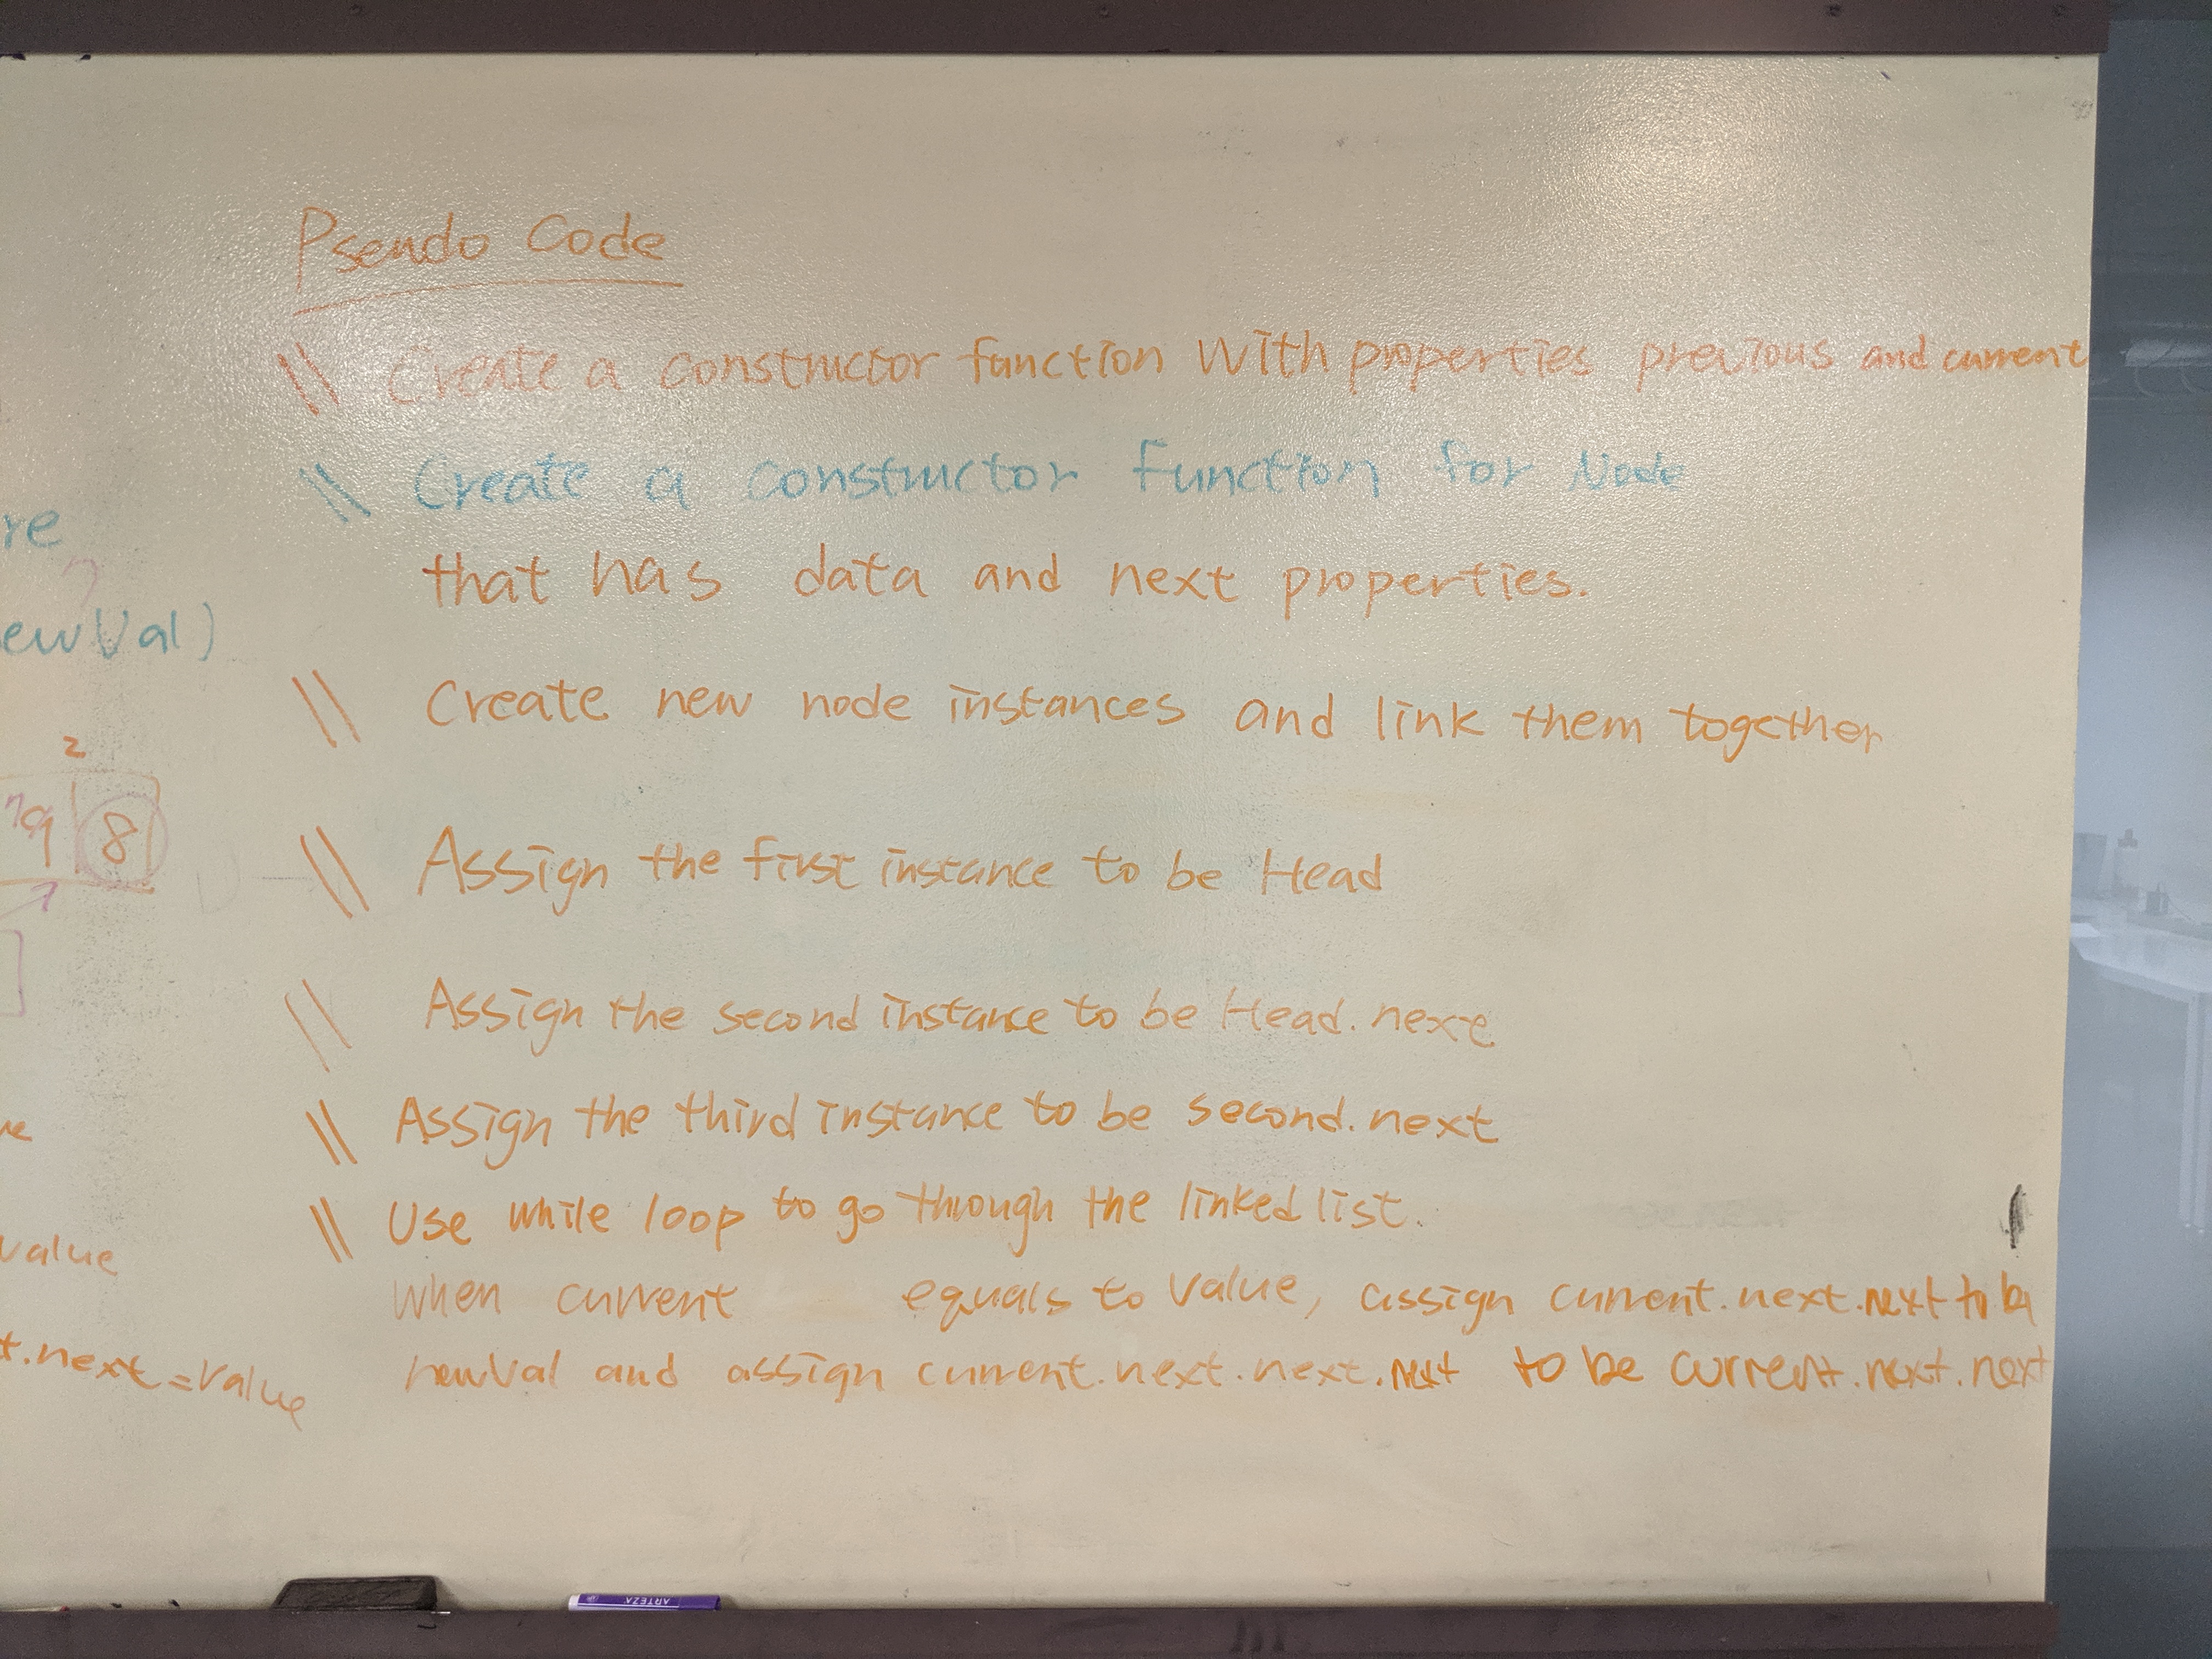 Psendo Code
\\ Create a constructor function with properties previous and current
\\ Create a constructor function for Node
that has data and next properties.
\\ Create new node instances and link them together
\\ Assign the first instance to be Head
\\ Assign the second instance to be Head.next
\\ Assign the third instance to be second.next
\\ Use while loop to go through the linked list.
when current equals to value, assign current.next.next to be
newVal and assign current.next.next.next to be current.next.next
re
ewVal)
2
9 8
value
t.next = value
ARTEZA